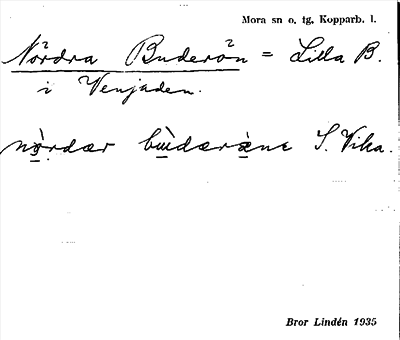 Mora sn o. tg, Kopparb. l.
Nördra Buderön = Lilla B.
i Venjaden.
S. Vika.
Bror Lindén 1935